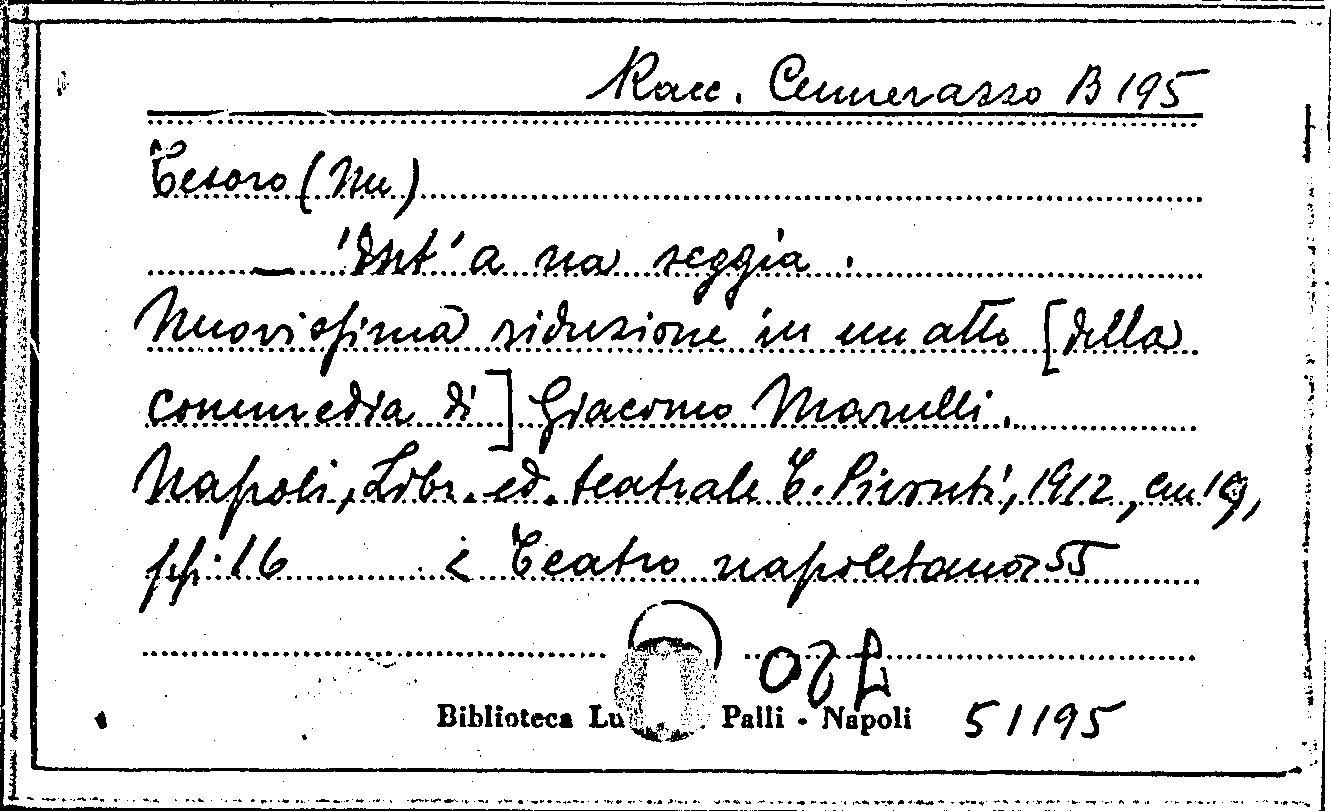 Racc. Cennerasso B 195
Tesoro (Nu)
— 'Int' a na seggia.
Nuovissima riduzione in un atto [della
commedia di] Giacomo Marulli.
Napoli, Libr. ed. teatrale T. Pironti, 1912, cm 19,
pp. 16 < Teatro napoletano > 55
Biblioteca Lu Palli - Napoli 51195